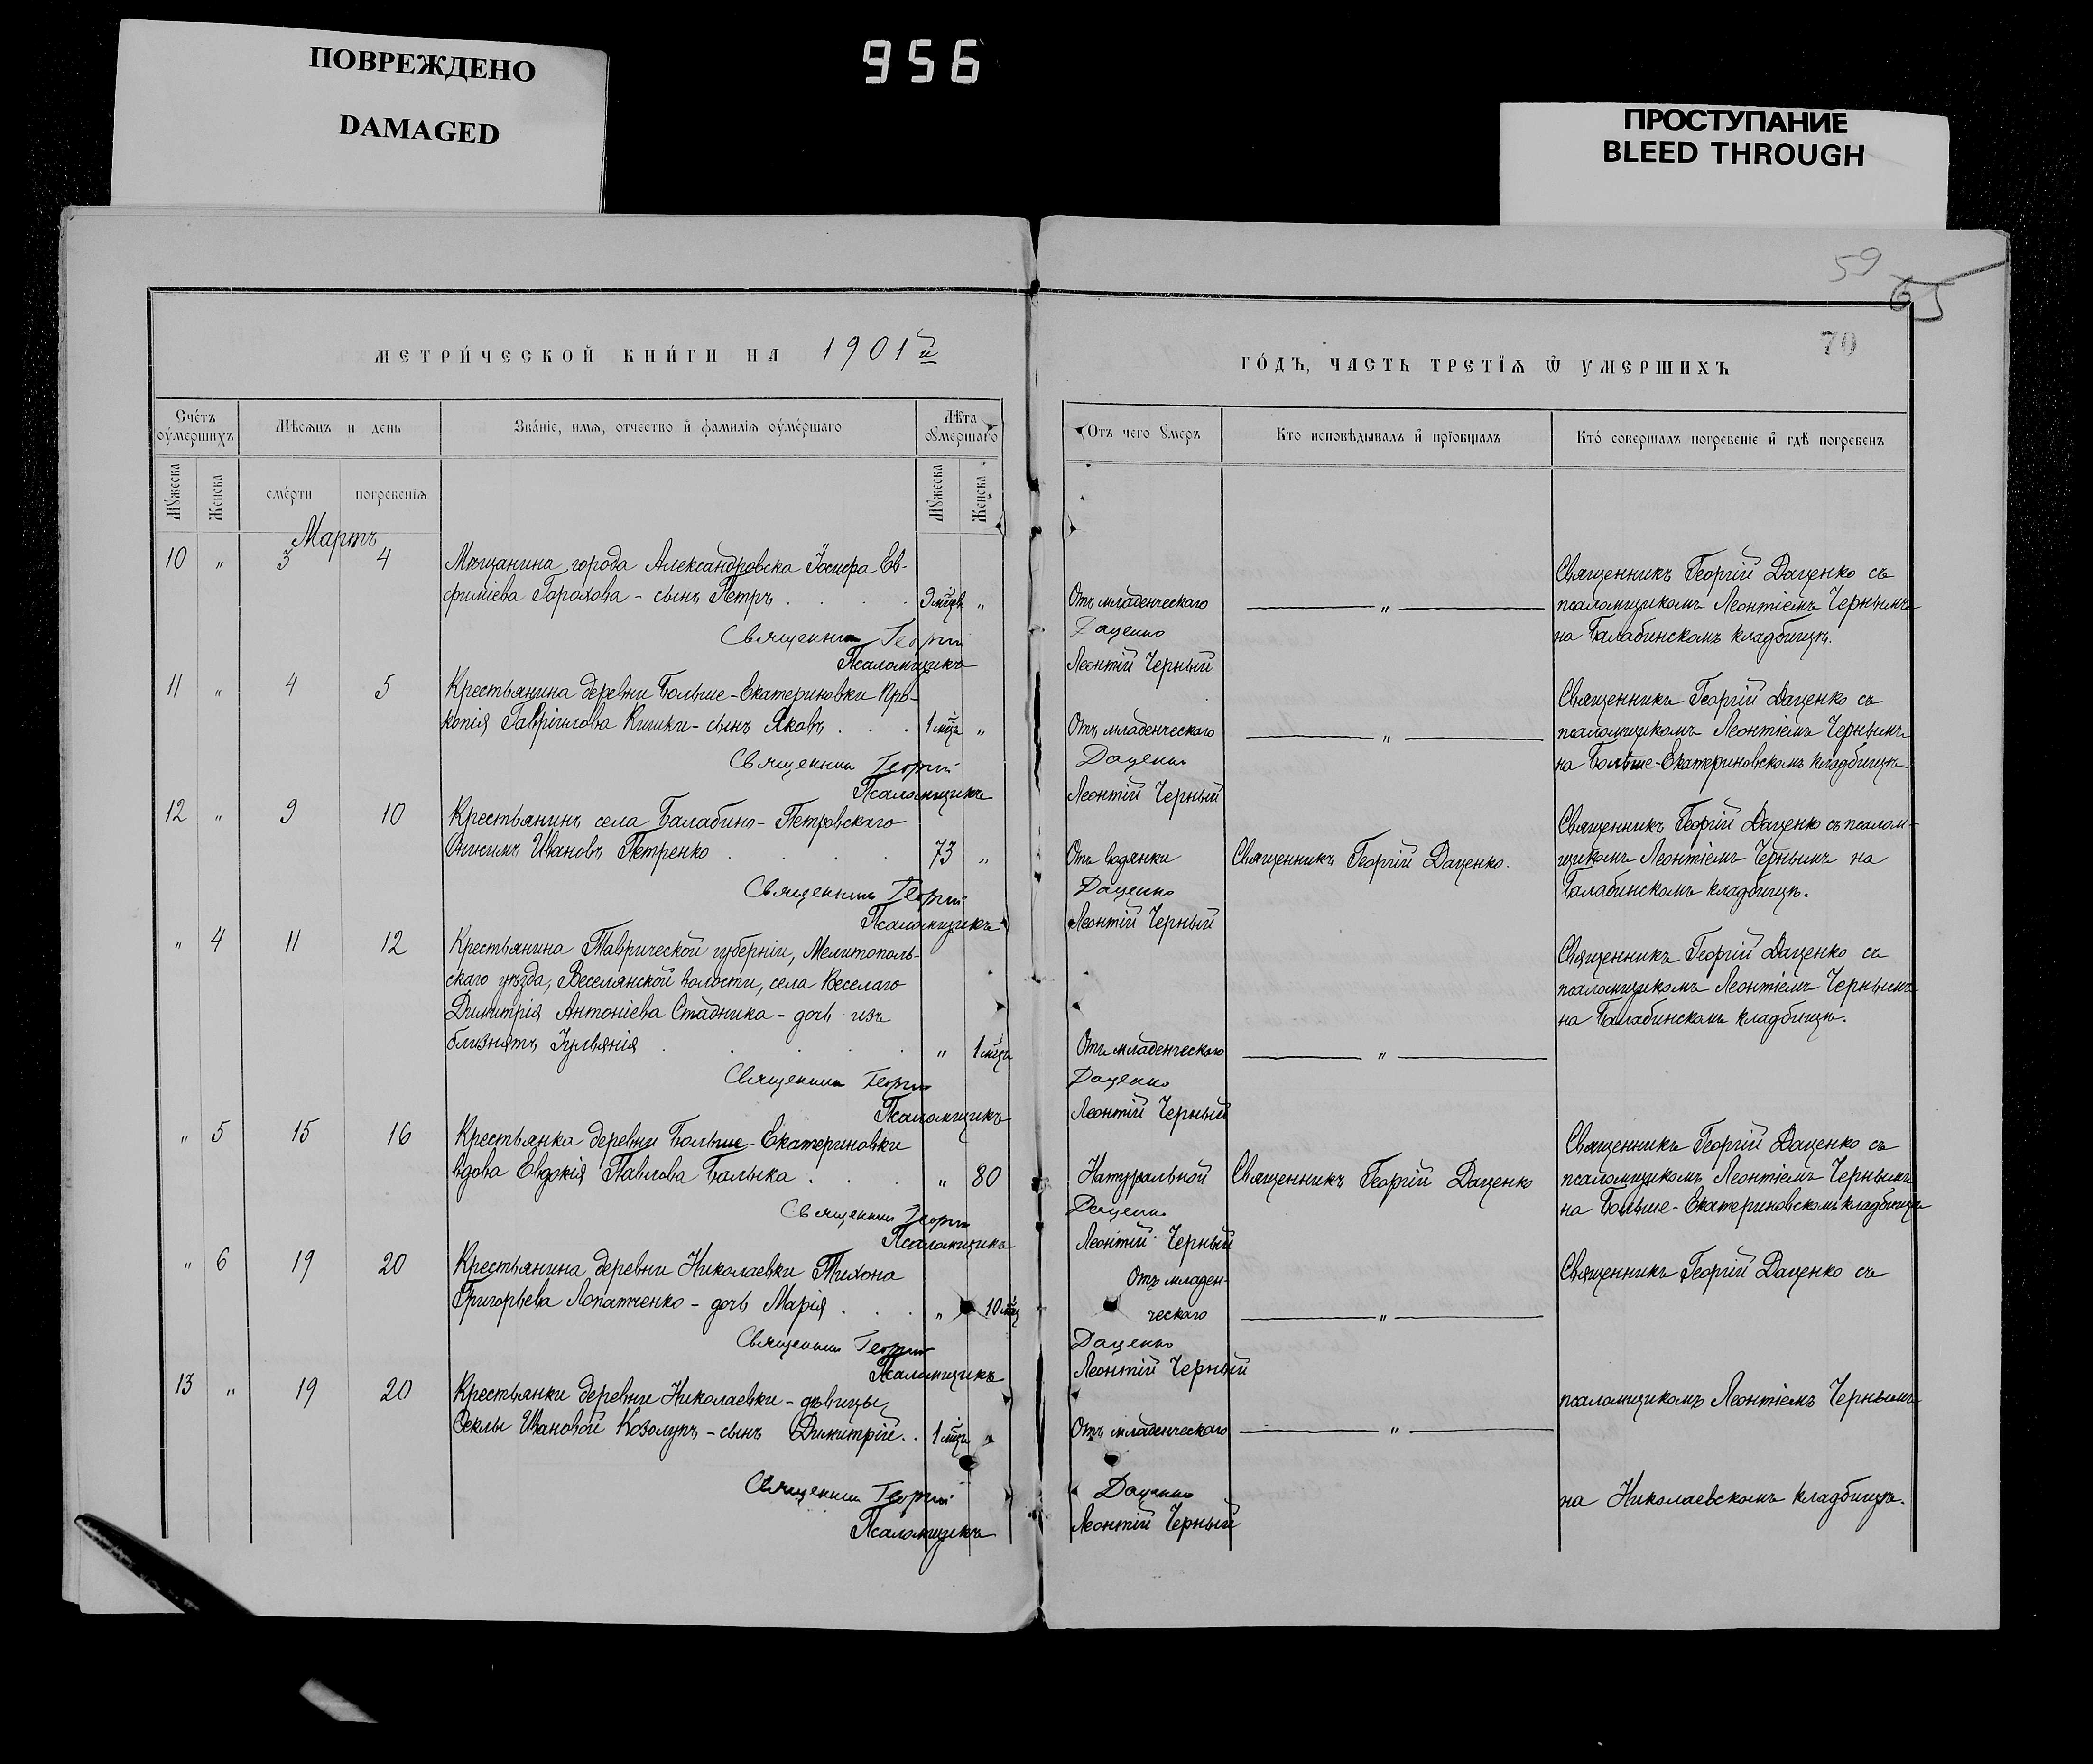 ПОВРЕЖДЕНО
DAMAGED
956
ПРОСТУПАНИЕ
BLEED THROUGH
59
65
70
МЕТРИ́ЧЕСКОЙ КНИ́ГИ НА 1901й
ГО́ДЪ, ЧАСТЬ ТРЕТІѦ Ѿ УМЕРШИХЪ
Сче́тъ оу҆ме́ршихъ
Мѣсѧцъ и день
Зва́нїе, имѧ, отчество и҆ фамилїѧ оу҆ме́ршаго
Лѣ́та оумершаго
Отъ чего умеръ
Кто исповѣдывалъ и҆ прїобщалъ
Кто́ совершалъ погребенїе и҆ гдѣ погребенъ
Мужеска
Женска
сме́рти
погребенїѧ
Мужеска
Женска
Мартъ
10 " 3 4 Мѣщанина города Александровска Іосифа Ев-
фиміева Горохова - сынъ Петръ . . . 9 мѣцъ "
Отъ младенческаго — " —
Священникъ Георгій Даценко съ
псаломщикомъ Леонтіемъ Чернымъ
на Балабинскомъ кладбищѣ.
Священникъ Георгій Даценко
Псаломщикъ Леонтій Черный
11 " 4 5 Крестьянина деревни Больше-Екатериновки Про-
копія Гавріилова Кишки - сынъ Яковъ . . . 1 мѣцъ "
Отъ младенческаго — " —
Священникъ Георгій Даценко съ
псаломщикомъ Леонтіемъ Чернымъ
на Больше-Екатериновскомъ кладбищѣ.
Священникъ Георгій Даценко
Псаломщикъ Леонтій Черный
12 " 9 10 Крестьянинъ села Балабино-Петровскаго
Онисимъ Ивановъ Петренко . . . . 73 "
Отъ водянки Священникъ Георгій Даценко.
Священникъ Георгій Даценко съ псалом-
щикомъ Леонтіемъ Чернымъ на
Балабинскомъ кладбищѣ.
Священникъ Георгій Даценко
Псаломщикъ Леонтій Черный
" 4 11 12 Крестьянина Таврической губерніи, Мелитополь-
скаго уѣзда, Веселянской волости, села Веселаго
Димитрія Антоніева Стадника - дочь изъ
близнятъ Іуліанія . . . . . " 1 мѣцъ
Отъ младенческаго — " —
Священникъ Георгій Даценко съ
псаломщикомъ Леонтіемъ Чернымъ
на Балабинскомъ кладбищѣ.
Священникъ Георгій Даценко
Псаломщикъ Леонтій Черный
" 5 15 16 Крестьянка деревни Больше-Екатериновки
вдова Евдокія Павлова Балыка . . . " 80
Натуральной Священникъ Георгій Даценко
Священникъ Георгій Даценко съ
псаломщикомъ Леонтіемъ Чернымъ
на Больше-Екатериновскомъ кладбищѣ
Священникъ Георгій Даценко
Псаломщикъ Леонтій Черный
" 6 19 20 Крестьянина деревни Николаевки Тихона
Григорьева Лопатченко - дочь Марія . . . " 10 мѣц
Отъ младен-
ческаго — " —
Священникъ Георгій Даценко съ
Священникъ Георгій Даценко
Псаломщикъ Леонтій Черный
13 " 19 20 Крестьянки деревни Николаевки - дѣвицы
Ѳеклы Ивановой Козолупъ - сынъ Димитрій . . 1 мѣцъ "
Отъ младенческаго — " —
псаломщикомъ Леонтіемъ Чернымъ
на Николаевскомъ кладбищѣ.
Священникъ Георгій Даценко
Псаломщикъ Леонтій Черный